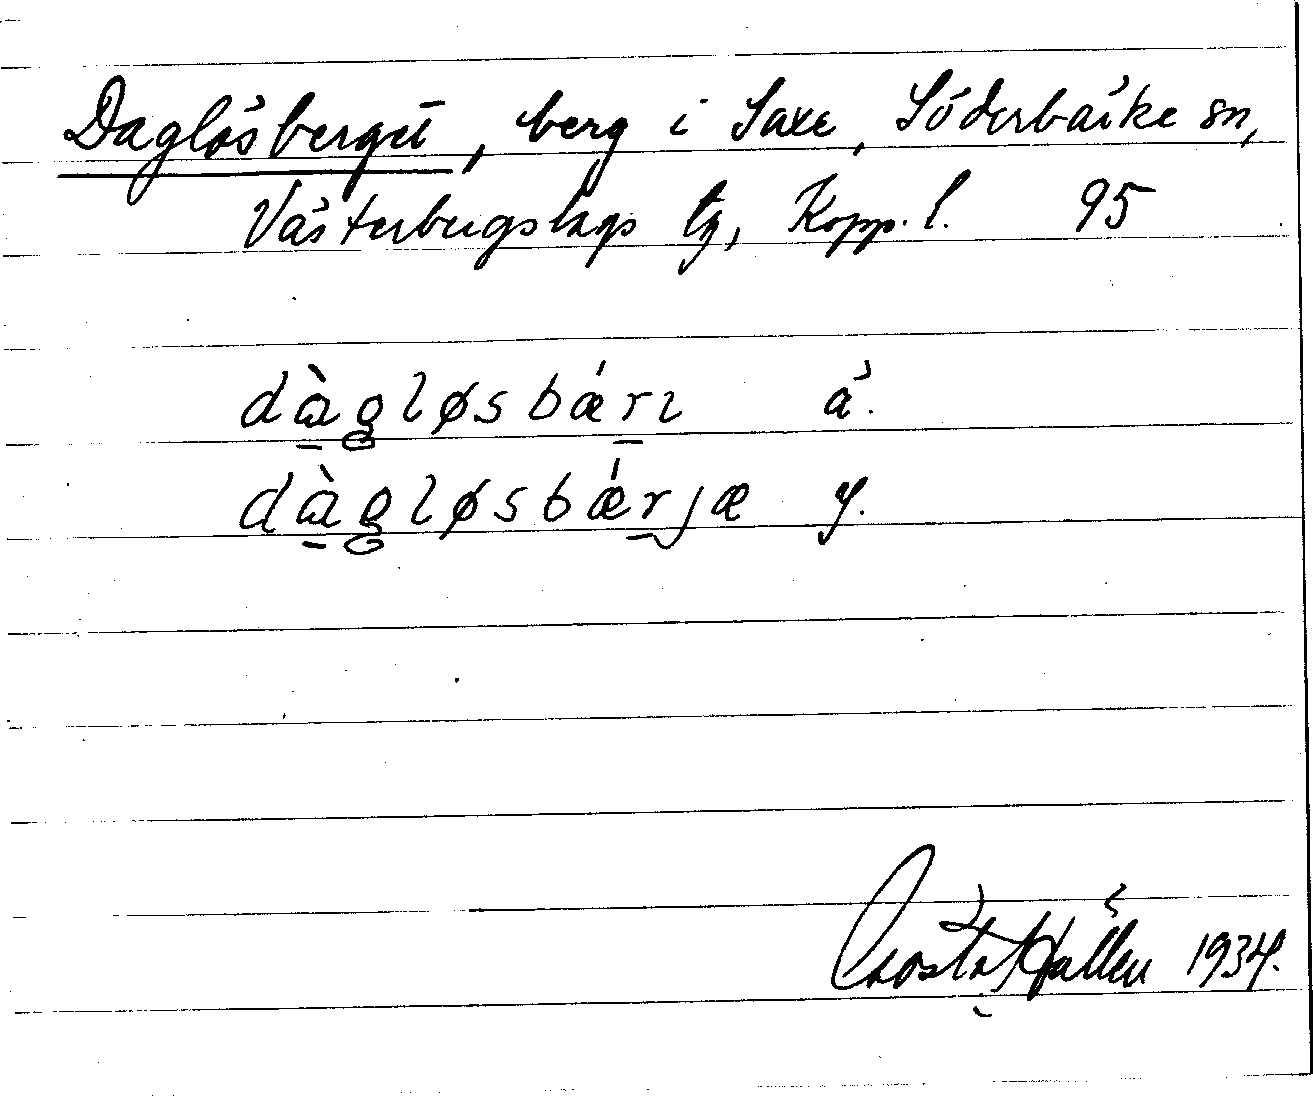 Daglösberget, berg i Saxe, Söderbärke sn,
Västerbergslags tg, Kopp. l. 95
dàgløsbǽrɩ ä.
dàgløsbǽrjæ y.
Gösta Hallén 1934.